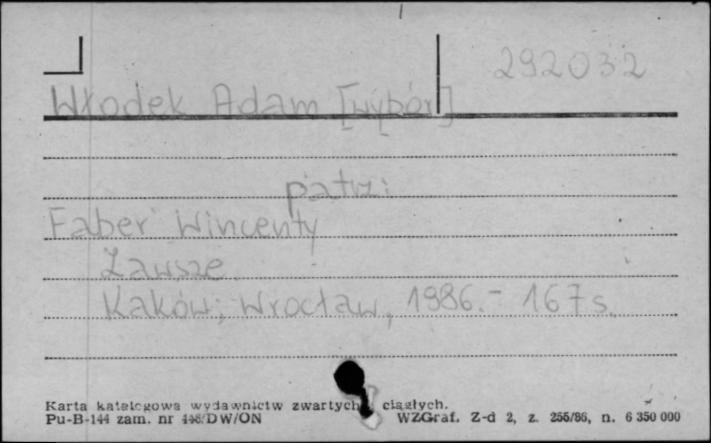 292032
Włodek Adam [wybór]
patrz:
Faber Wincenty
Zawsze
Kaków; Wrocław, 1986.- 167 s.
Karta katalogowa wydawnictw zwartych i ciągłych.
Pu-B-144 zam. nr 446/DW/ON WZGraf. Z-d 2, z. 255/86, n. 6 350 000